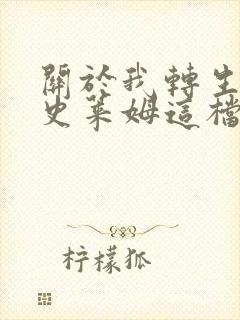 關於我轉生
史萊姆這檔
柠檬狐